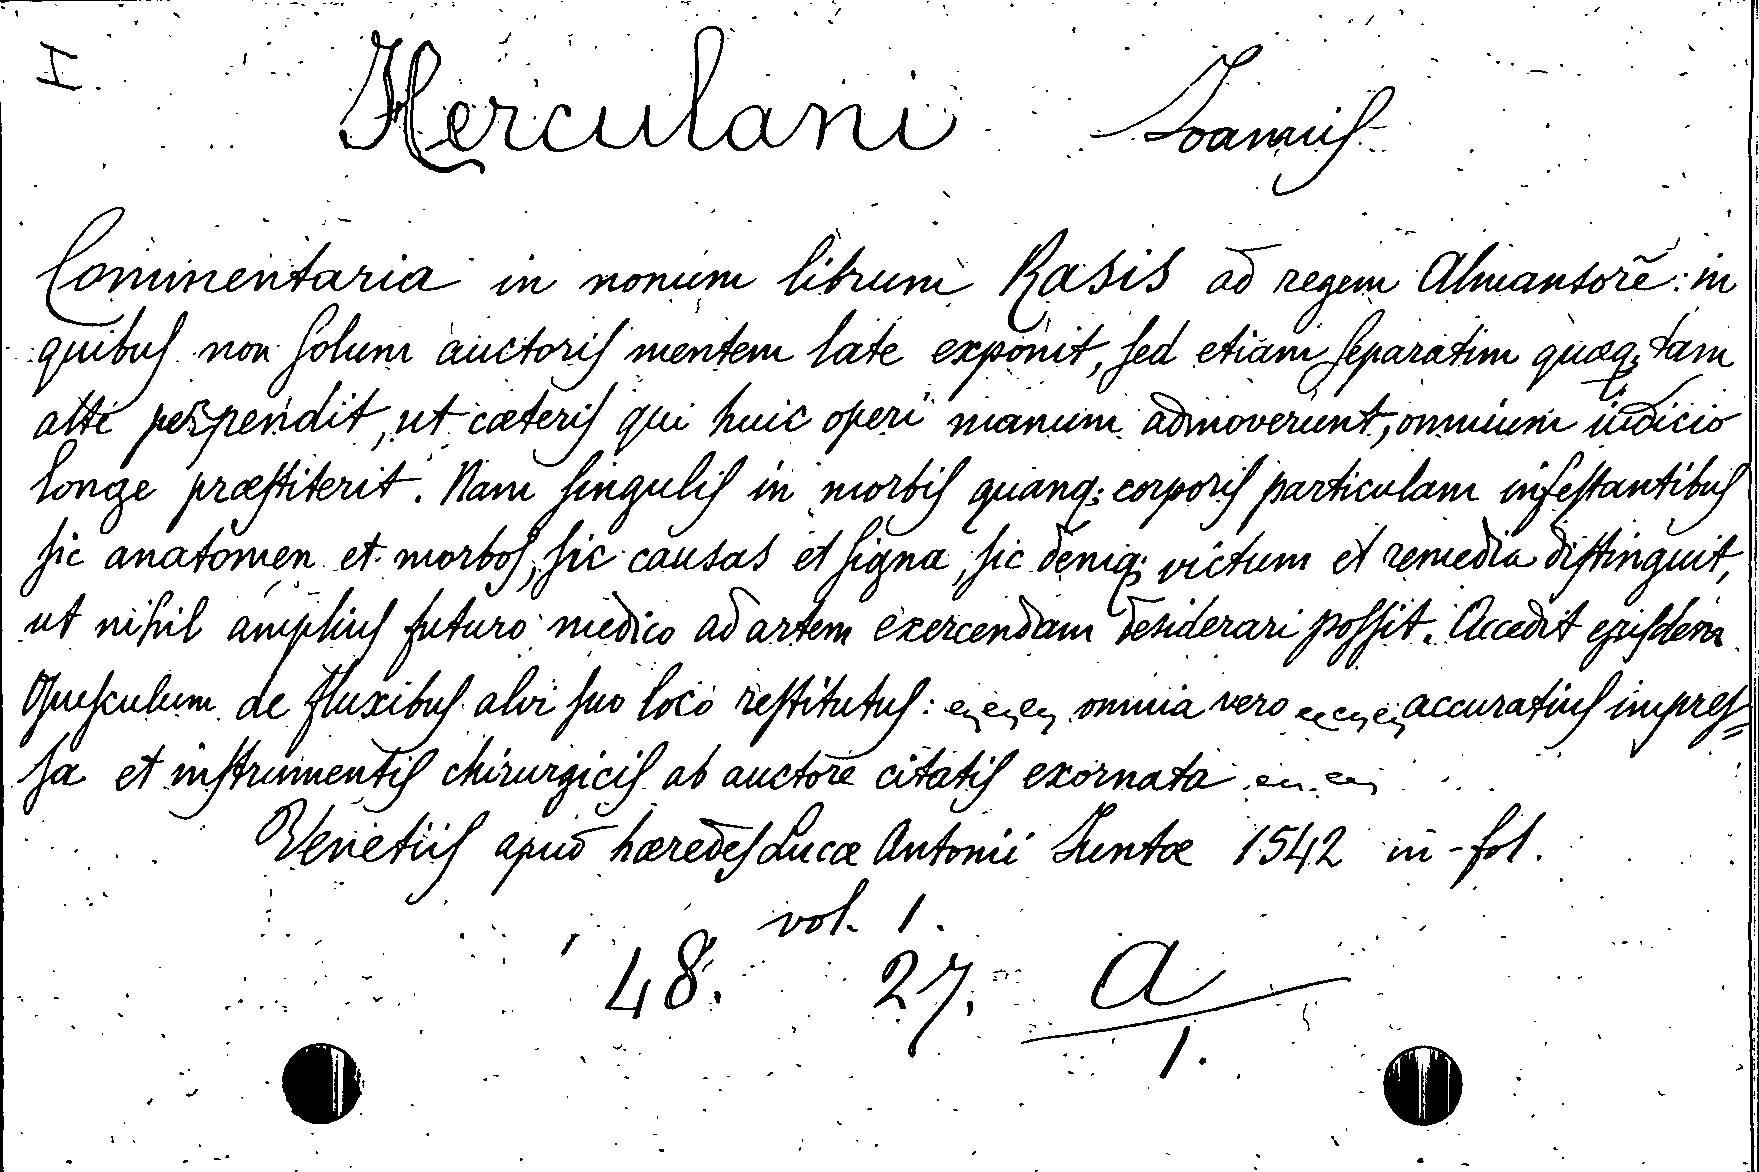 I
Herculani Ioannis
Commentaria in nonum librum Rasis ad regem Almansorē: in
quibus non solum auctoris mentem late exponit, sed etiam separatim quæq; tam
alte perpendit, ut cæteris qui huic operi manum admoverunt, omnium iudicio
longe præstiterit. Nam singulis in morbis quanq; corporis particulam infestantibus
sic anatomen et morbos, sic causas et signa, sic deniq; victum et remedia distinguit,
ut nihil amplius futuro medico ad artem exercendam desiderari possit. Accedit ejusdem
Opusculum de fluxibus alvi suo loco restitutus: omnia vero accuratius impres=
sa et instrumentis chirurgicis ab auctore citatis exornata
Venetiis apud hæredes Lucæ Antonii Iuntæ 1542 in-fol.
vol. 1.
48. 27. A
1.